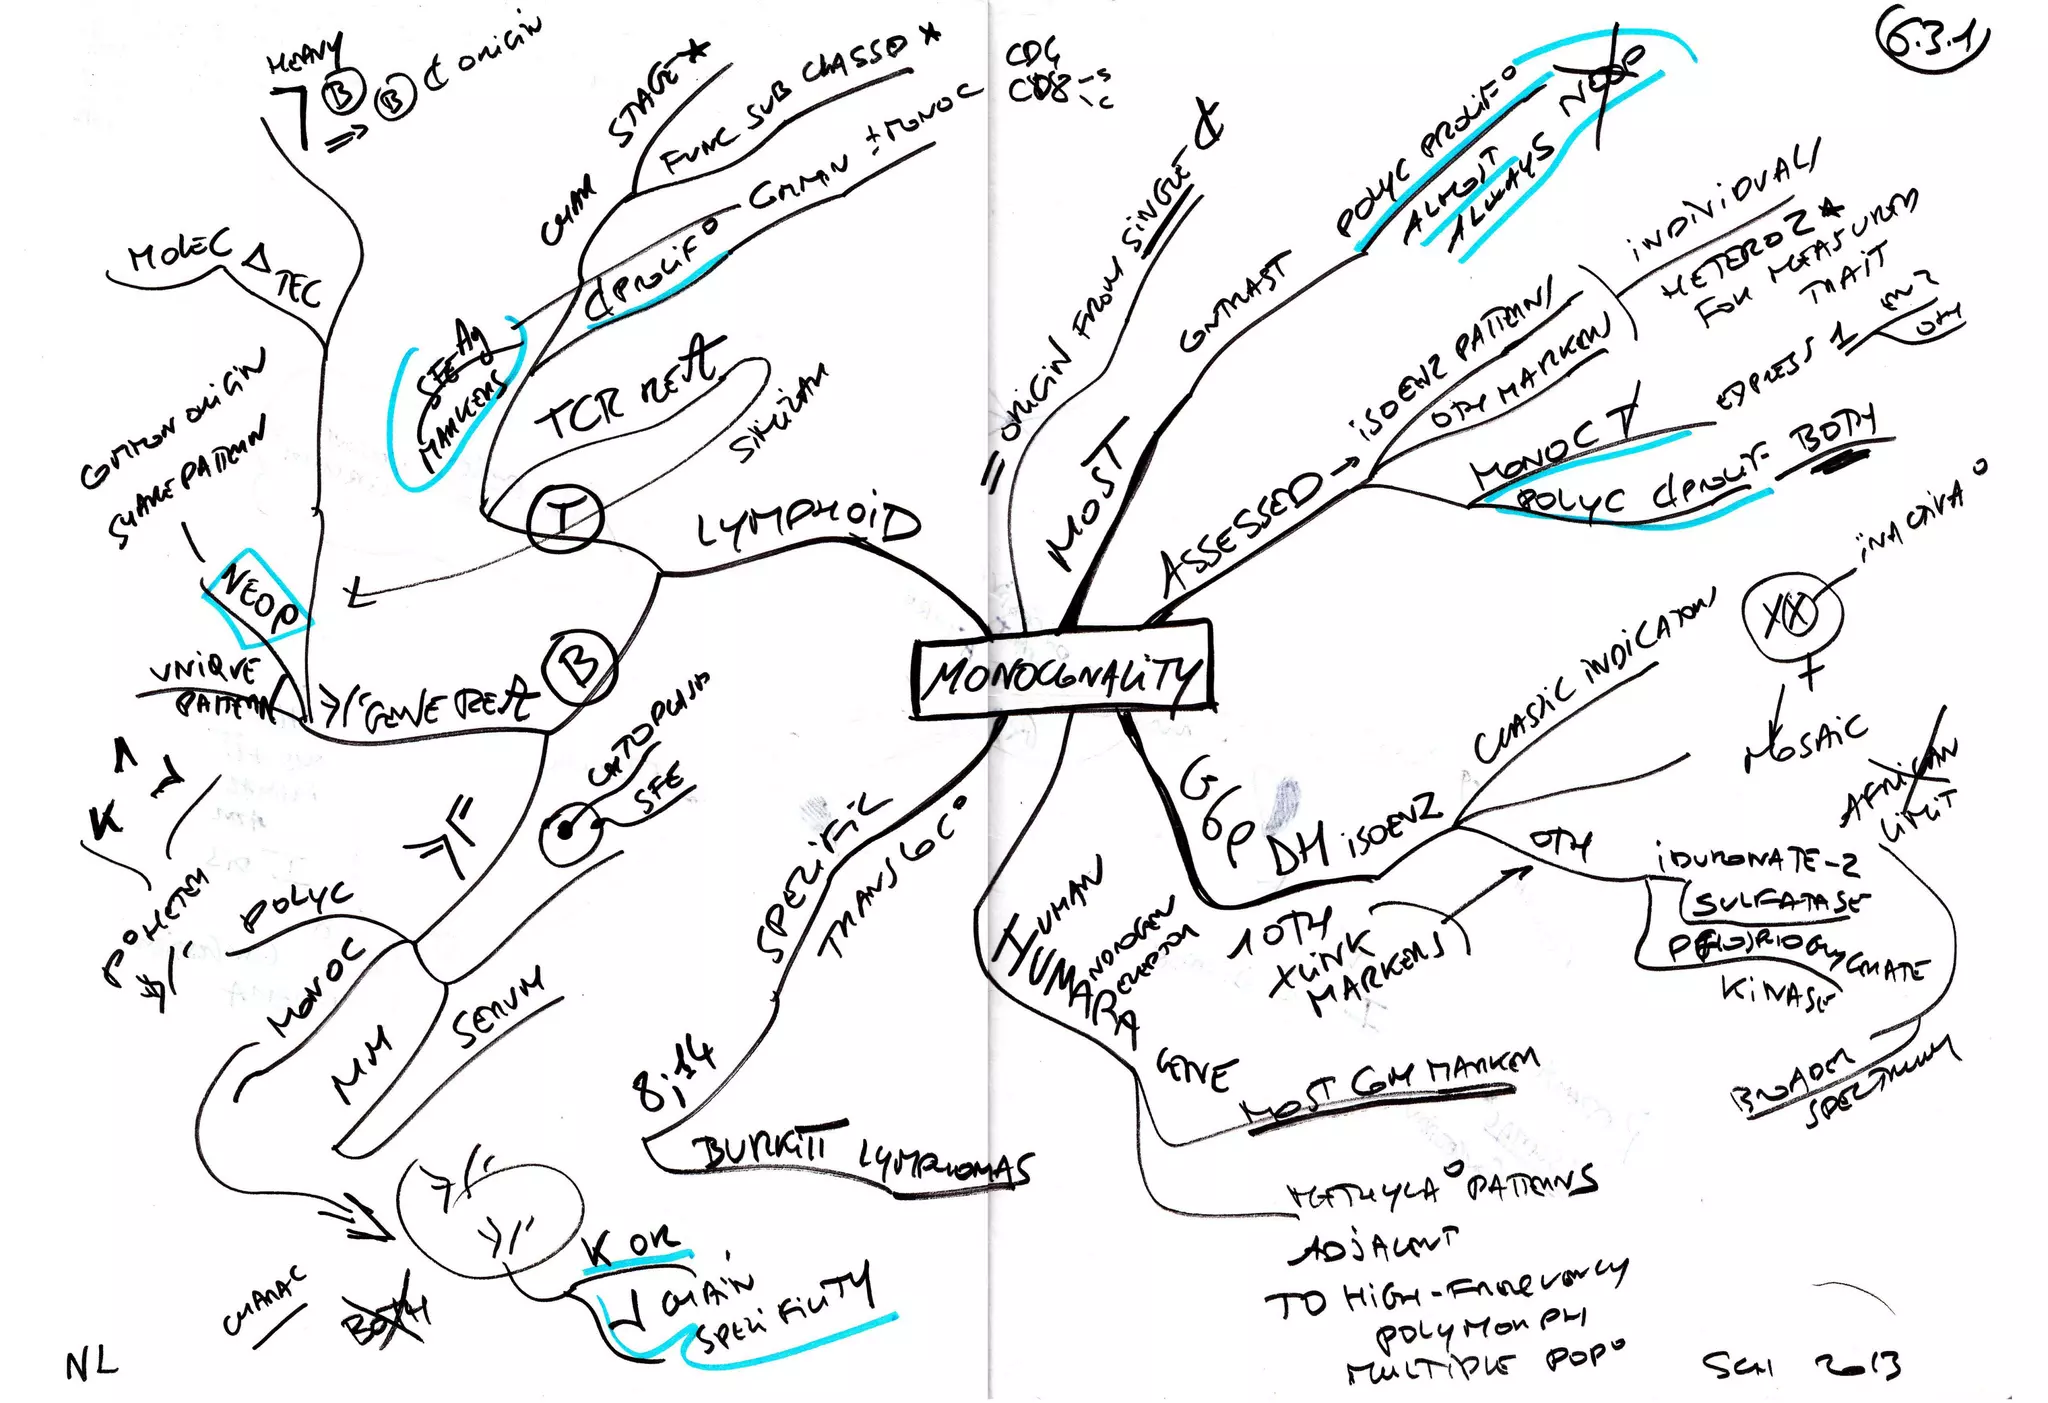 6.3.1
HEAVY
B
B
ORIGIN
MOLEC
TEC
COMMON ORIGIN
SHARE PATTERN
NEOP
UNIQUE
PATTERN
GENE REA
B
K
POLYC
MONOC
MM
SERUM
CYTOPLASM
SFE
K OR
CHAIN
SPECIFICITY
CHARAC
BOTH
NL
CHAR
STAGE *
FUNC SUB CLASSO *
GRMN ± MONOC
PROLIF°
SFE Ag
MARKERS
TCR REA
SIMILAR
T
LYMPHOID
CD4
CD8
= ORIGIN FROM SINGLE
MOST
CONTRAST
POLYC PROLIF°
ALMOST
ALWAYS
NEOP
ASSESSED →
ISOENZ PATTERN/
OTH MARKER
INDIVIDUAL/
HETEROZ *
FOR MEASURED
TRAIT
MONOC T
EXPRESS 1
OTH
POLYC PROLIF BOTH
MONOCONALITY
G6P DH ISOENZ
CLASSIC INDICATOR
XX
INACTIVA°
MOSAIC
AFRICAN
LIMIT
OTH
IDURONATE-2
SULFATASE
KINASE
BROADER
SPECTRUM
1 OTH
XLINK
MARKERS
HUMAN
HUMARA
ANDROGEN
RECEPTOR
GENE
MOST COM MARKER
METHYLA° PATTERNS
ADJACENT
TO HIGH-FREQUENCY
POLYMORPH
MULTIPLE POP°
SPECIFIC
TRANSLOC°
8;14
BURKITT LYMPHOMAS
SCH 2013